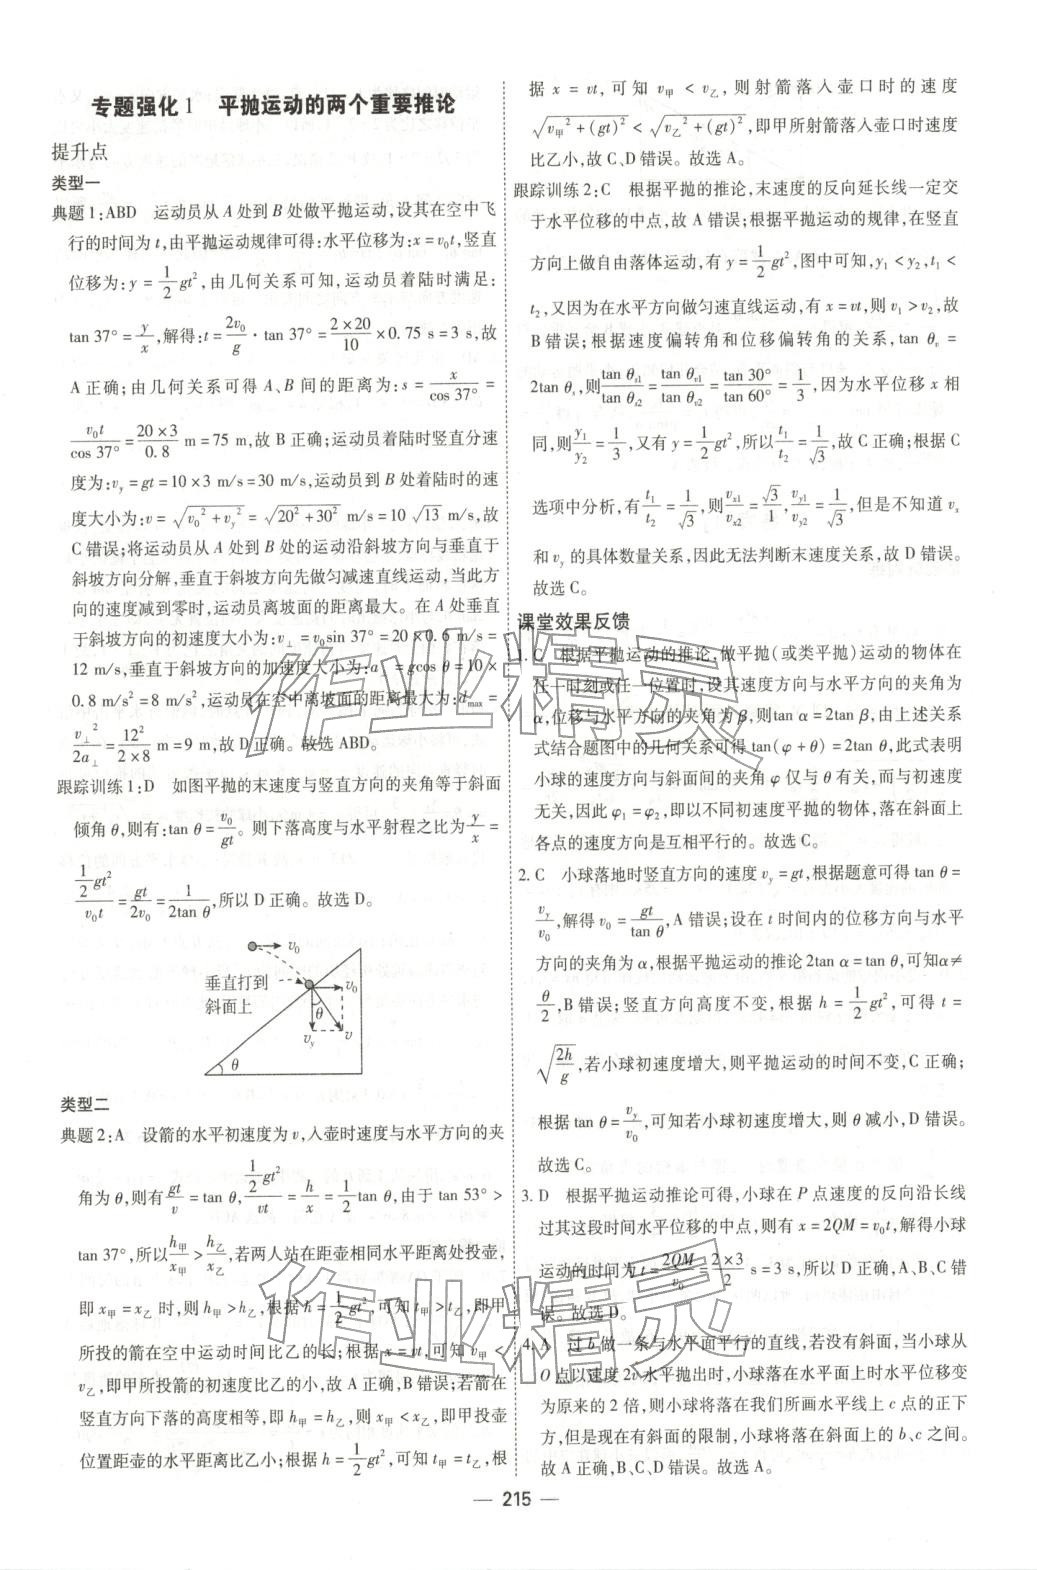 专题强化1 平抛运动的两个重要推论
提升点
类型一
典题1:ABD 运动员从A处到B处做平抛运动,设其在空中飞
行的时间为t,由平抛运动规律可得:水平位移为:x=v₀t,竖直
位移为:y=\frac{1}{2}gt²,由几何关系可知,运动员着陆时满足:
tan 37°=\frac{y}{x},解得:t=\frac{2v₀}{g}·tan 37°=\frac{2×20}{10}×0.75 s=3 s,故
A正确;由几何关系可得A、B间的距离为:s=\frac{x}{cos 37°}=
\frac{v₀t}{cos 37°}=\frac{20×3}{0.8} m=75 m,故B正确;运动员着陆时竖直分速
度为:v_y=gt=10×3 m/s=30 m/s,运动员从A处到B处着陆时的速
度大小为:v=\sqrt{v₀²+v_y²}=\sqrt{20²+30²} m/s=10\sqrt{13} m/s,故
C错误;将运动员从A处到B处的运动沿斜坡方向与垂直于
斜坡方向分解,垂直于斜坡方向先做匀减速直线运动,当此方
向的速度减到零时,运动员离坡面的距离最大。在A处垂直
于斜坡方向的初速度大小为:v_⊥=v₀sin 37°=20×0.6 m/s=
12 m/s,垂直于斜坡方向的加速度大小为:a_⊥=gcos θ=10×
0.8 m/s²=8 m/s²,运动员在空中离坡面的距离最大为:d_max=
\frac{v_⊥²}{2a_⊥}=\frac{12²}{2×8} m=9 m,故D正确。故选ABD。
跟踪训练1:D 如图平抛的末速度与竖直方向的夹角等于斜面
倾角θ,则有:tan θ=\frac{v₀}{gt}。则下落高度与水平射程之比为\frac{y}{x}=
\frac{\frac{1}{2}gt²}{v₀t}=\frac{gt}{2v₀}=\frac{1}{2tan θ},所以D正确。故选D。
v₀
垂直打到
斜面上
v₀
θ
v_y
v
θ
类型二
典题2:A 设箭的水平初速度为v,入壶时速度与水平方向的夹
角为θ,则有\frac{gt}{v}=tan θ,\frac{\frac{1}{2}gt²}{vt}=\frac{h}{x}=\frac{1}{2}tan θ,由于tan 53°>
tan 37°,所以\frac{h_甲}{x_甲}>\frac{h_乙}{x_乙},若两人站在距壶相同水平距离处投壶,
即x_甲=x_乙时,则h_甲>h_乙,根据h=\frac{1}{2}gt²,可知t_甲>t_乙,即甲
所投的箭在空中运动时间比乙的长;根据x=vt,可知v_甲<
v_乙,即甲所投箭的初速度比乙的小,故A正确,B错误;若箭在
竖直方向下落的高度相等,即h_甲=h_乙,则x_甲<x_乙,即甲投壶
位置距壶的水平距离比乙小;根据h=\frac{1}{2}gt²,可知t_甲=t_乙,根
据x=vt,可知v_甲<v_乙,则射箭落入壶口时的速度
\sqrt{v_甲²+(gt)²}<\sqrt{v_乙²+(gt)²},即甲所射箭落入壶口时速度
比乙小,故C、D错误。故选A。
跟踪训练2:C 根据平抛的推论,末速度的反向延长线一定交
于水平位移的中点,故A错误;根据平抛运动的规律,在竖直
方向上做自由落体运动,有y=\frac{1}{2}gt²,图中可知,y₁<y₂,t₁<
t₂,又因为在水平方向做匀速直线运动,有x=vt,则v₁>v₂,故
B错误;根据速度偏转角和位移偏转角的关系,tan θ_v=
2tan θ_s,则\frac{tan θ_{s1}}{tan θ_{s2}}=\frac{tan θ_{v1}}{tan θ_{v2}}=\frac{tan 30°}{tan 60°}=\frac{1}{3},因为水平位移x相
同,则\frac{y₁}{y₂}=\frac{1}{3},又有y=\frac{1}{2}gt²,所以\frac{t₁}{t₂}=\frac{1}{\sqrt{3}},故C正确;根据C
选项中分析,有\frac{t₁}{t₂}=\frac{1}{\sqrt{3}},则\frac{v_{x1}}{v_{x2}}=\frac{\sqrt{3}}{1},\frac{v_{y1}}{v_{y2}}=\frac{1}{\sqrt{3}},但是不知道v_x
和v_y的具体数量关系,因此无法判断末速度关系,故D错误。
故选C。
课堂效果反馈
1. C 根据平抛运动的推论,做平抛(或类平抛)运动的物体在
任一时刻或任一位置时,设其速度方向与水平方向的夹角为
α,位移与水平方向的夹角为β,则tan α=2tan β,由上述关系
式结合题图中的几何关系可得tan(φ+θ)=2tan θ,此式表明
小球的速度方向与斜面间的夹角φ仅与θ有关,而与初速度
无关,因此φ₁=φ₂,即以不同初速度平抛的物体,落在斜面上
各点的速度方向是互相平行的。故选C。
2. C 小球落地时竖直方向的速度v_y=gt,根据题意可得tan θ=
\frac{v_y}{v₀},解得v₀=\frac{gt}{tan θ},A错误;设在t时间内的位移方向与水平
方向的夹角为α,根据平抛运动的推论2tan α=tan θ,可知α≠
\frac{θ}{2},B错误;竖直方向高度不变,根据h=\frac{1}{2}gt²,可得t=
\sqrt{\frac{2h}{g}},若小球初速度增大,则平抛运动的时间不变,C正确;
根据tan θ=\frac{v_y}{v₀},可知若小球初速度增大,则θ减小,D错误。
故选C。
3. D 根据平抛运动推论可得,小球在P点速度的反向沿长线
过其这段时间水平位移的中点,则有x=2QM=v₀t,解得小球
运动的时间为t=\frac{2QM}{v₀}=\frac{2×3}{2} s=3 s,所以D正确,A、B、C错
误。故选D。
4. A 过b做一条与水平面平行的直线,若没有斜面,当小球从
O点以速度2v水平抛出时,小球将落在水平面上时水平位移变
为原来的2倍,则小球将落在我们所画水平线上c点的正下
方,但是现在有斜面的限制,小球将落在斜面上的b、c之间。
故A正确,B、C、D错误。故选A。
— 215 —
作业精灵
作业精灵